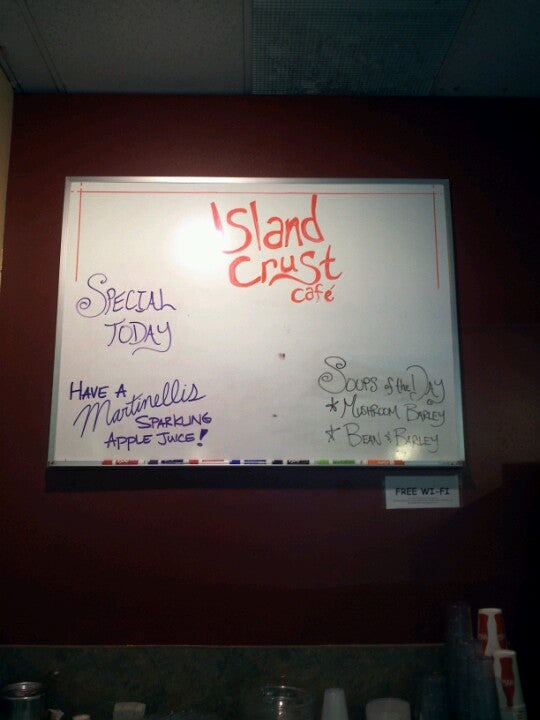 Island
Crust
Café
SPECIAL
TODAY
HAVE A
Martinellis
SPARKLING
APPLE JUICE!
SOUPS of the DAY
* MUSHROOM BARLEY
* BEAN & BARLEY
FREE WI-FI